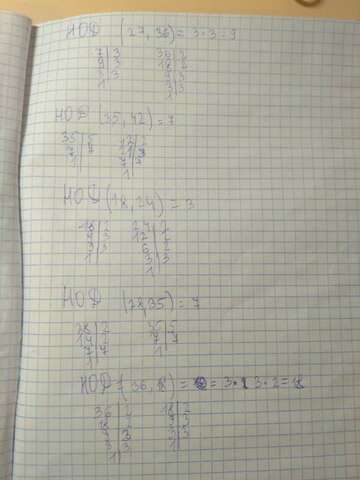 НОД (27, 36) = 3·3=9
7|3 36|2
9|3 18|2
3|3 9|3
1 3|3
1
НОД (35, 42) = 7
35|5 42|2
7|7 21|3
1 7|7
1
НОД (18, 24) = 3
18|2 24|2
9|3 12|2
3|3 6|2
1 3|3
1
НОД (28,35) = 7
28|2 35|5
14|2 7|7
7|7 1
1
НОД (36, 18) = = 3· 3·2=18
36|2 18|2
18|2 9|3
9|3 3|3
3|3 1
1